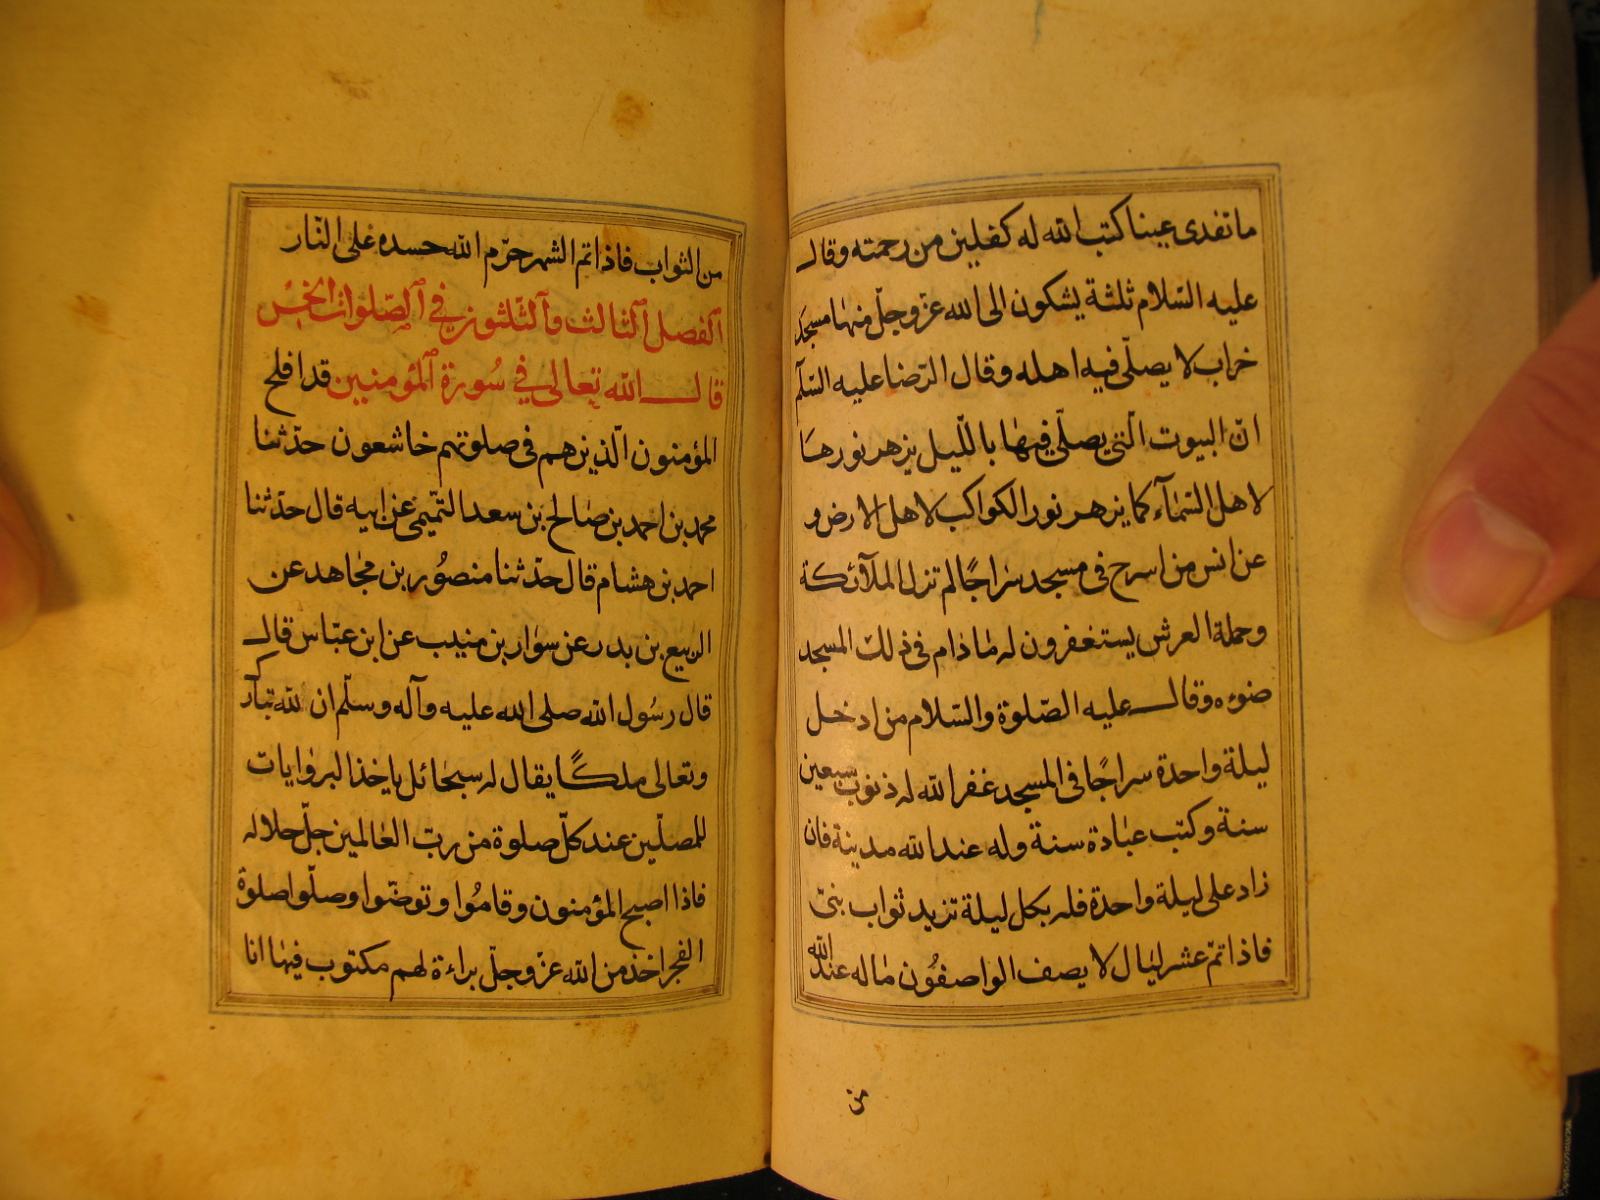 ما تقذى عينا كتب الله له كفلين من رحمته وقال
عليه السّلام ثلثة يشكون الى الله عزّ وجلّ منها مسجد
خراب لا يصلّى فيه اهله وقال الرّضا عليه السّلم
انّ البيوت الّتى يصلّى فيها بالّليل يزهر نورها
لاهل السّمآء كما يزهر نور الكواكب لاهل الارض و
عن انس من اسرج فى مسجد سراجًا لم تزل الملآئكة
وحملة العرش يستغفرون له ما دام فى ذلك المسجد
ضوءه وقال عليه الصّلوة والسّلام من ادخل
ليلة واحدة سراجًا فى المسجد غفر الله له ذنوب سبعين
سنة وكتب عبادة سنة وله عند الله مدينة فان
زاد على ليلة واحدة فله بكل ليلة تزيد ثواب نبىّ
فاذا تمّ عشر ليال لا يصف الواصفون ما له عند الله
من
من الثواب فاذا تمّ الشهر حرّم الله جسده على النّار
الفصل الثالث والثّلثون فى الصّلوات الخمس
قال الله تعالى فى سورة المؤمنين قد افلح
المؤمنون الّذين هم فى صلوتهم خاشعون حدّثنا
محمد بن احمد بن صالح بن سعد التّميمى عن ابيه قال حدّثنا
احمد بن هشام قال حدّثنا منصور بن مجاهد عن
الربيع بن بدر عن سوار بن منيب عن ابن عبّاس قال
قال رسول الله صلى الله عليه وآله وسلّم ان لله تبارك
وتعالى ملكًا يقال له سبحائل ياخذ البروايات
للمصلّين عند كلّ صلوة من ربّ العالمين جلّ جلاله
فاذا اصبح المؤمنون وقاموا وتوضّوا وصلّوا صلوة
الفجر اخذ من الله عزّ وجلّ براءة لهم مكتوب فيها انا